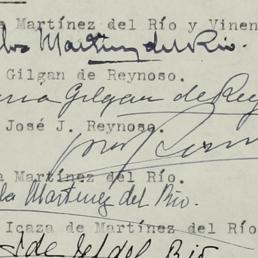 Martínez del Río y Vinen
Martinez del Rio.
Gilgan de Reynoso.
Gilgan de Rey
José J. Reynoso.
Martínez del Río.
Martinez del Rio.
Icaza de Martínez del Río
del Rio